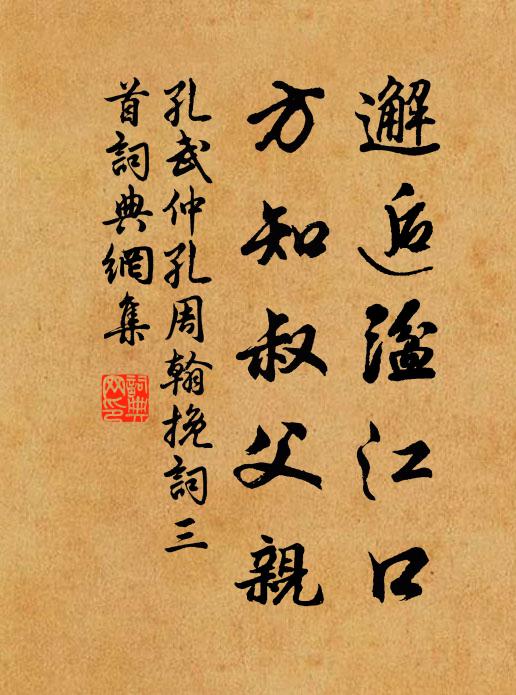 邂逅湓江口
方知叔父親
孔武仲孔周翰挽詞三
首詞典網集
詞典網印